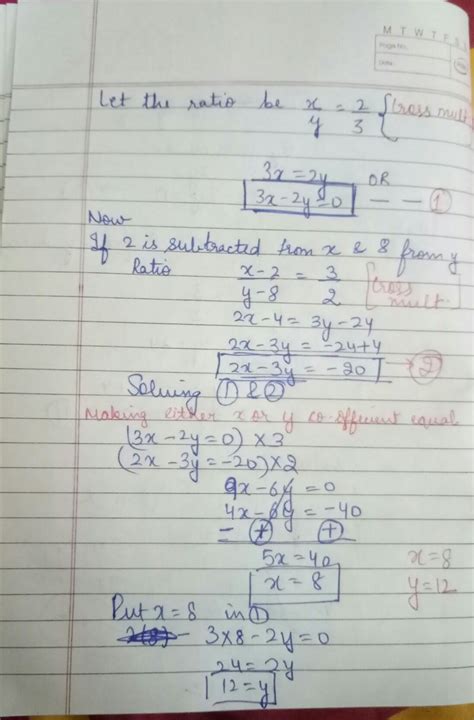 M T W T F S
Page No.
Date
Let the ratio be x/y = 2/3 { Cross mult
3x = 2y OR
3x - 2y = 0 — — ①
Now
If 2 is subtracted from x & 8 from y
Ratio x-2/y-8 = 3/2 [Cross mult
2x - 4 = 3y - 24
2x - 3y = -24+4
2x - 3y = -20 → ②
Solving ① & ②
Making either x or y co-efficient equal
(3x - 2y = 0) × 3
(2x - 3y = -20) × 2
9x - 6y = 0
4x - 6y = -40
- + +
5x = 40 x = 8
x = 8 y = 12
Put x = 8 in ①
3×8 - 2y = 0
24 = 2y
12 = y